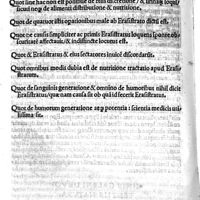 Quot sine hac non est possibile de
sicuti neq; de alimenti distributione & nutritione.
Quot de quatuor istis opationibus male ab Erasistrato dictū est.
Quot ꝙ causis simpliciter ac primis Erasistratus loquens sponte ob-
scuritatē affectauit, & indistincte locutus est.
Quot & Erasistratus & eius sectatores inuicē discordarūt.
Quot omnibus modis dubia est de nutritione tractatio apud Erasi-
stratum.
Quot de sanguinis generatione & omnino de humoribus nihil dicit
Erasistratus, que nam causa sit ob quā id fecerit Erasistratus.
Quot de humorum generatione at ꝙ potentia: scientia medicis uti-
lissima sit.